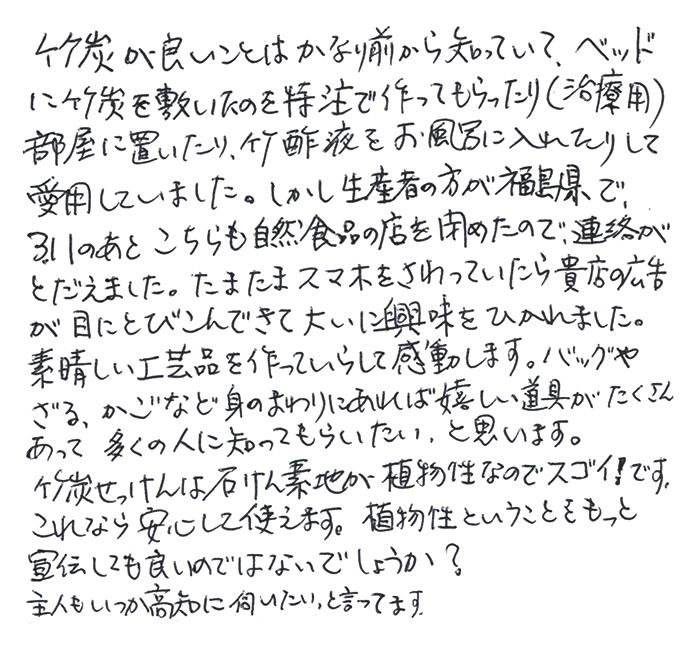 竹炭が良いことはかなり前から知っていて、ベッド
に竹炭を敷いたのを特注で作ってもらったり(治療用)
部屋に置いたり、竹酢液をお風呂に入れたりして
愛用していました。しかし生産者の方が福島県で、
3.11のあとこちらも自然食品の店を閉めたので、連絡が
とだえました。たまたまスマホをさわっていたら貴店の広告
が目にとびこんできて大いに興味をひかれました。
素晴しい工芸品を作っていらして感動します。バッグや
ざる、かごなど身のまわりにあれば嬉しい道具がたくさん
あって多くの人に知ってもらいたい、と思います。
竹炭せっけんは石けん素地が植物性なのでスゴイ!です。
これなら安心して使えます。植物性ということをもっと
宣伝しても良いのではないでしょうか?
主人もいつか高知に伺いたい、と言ってます。